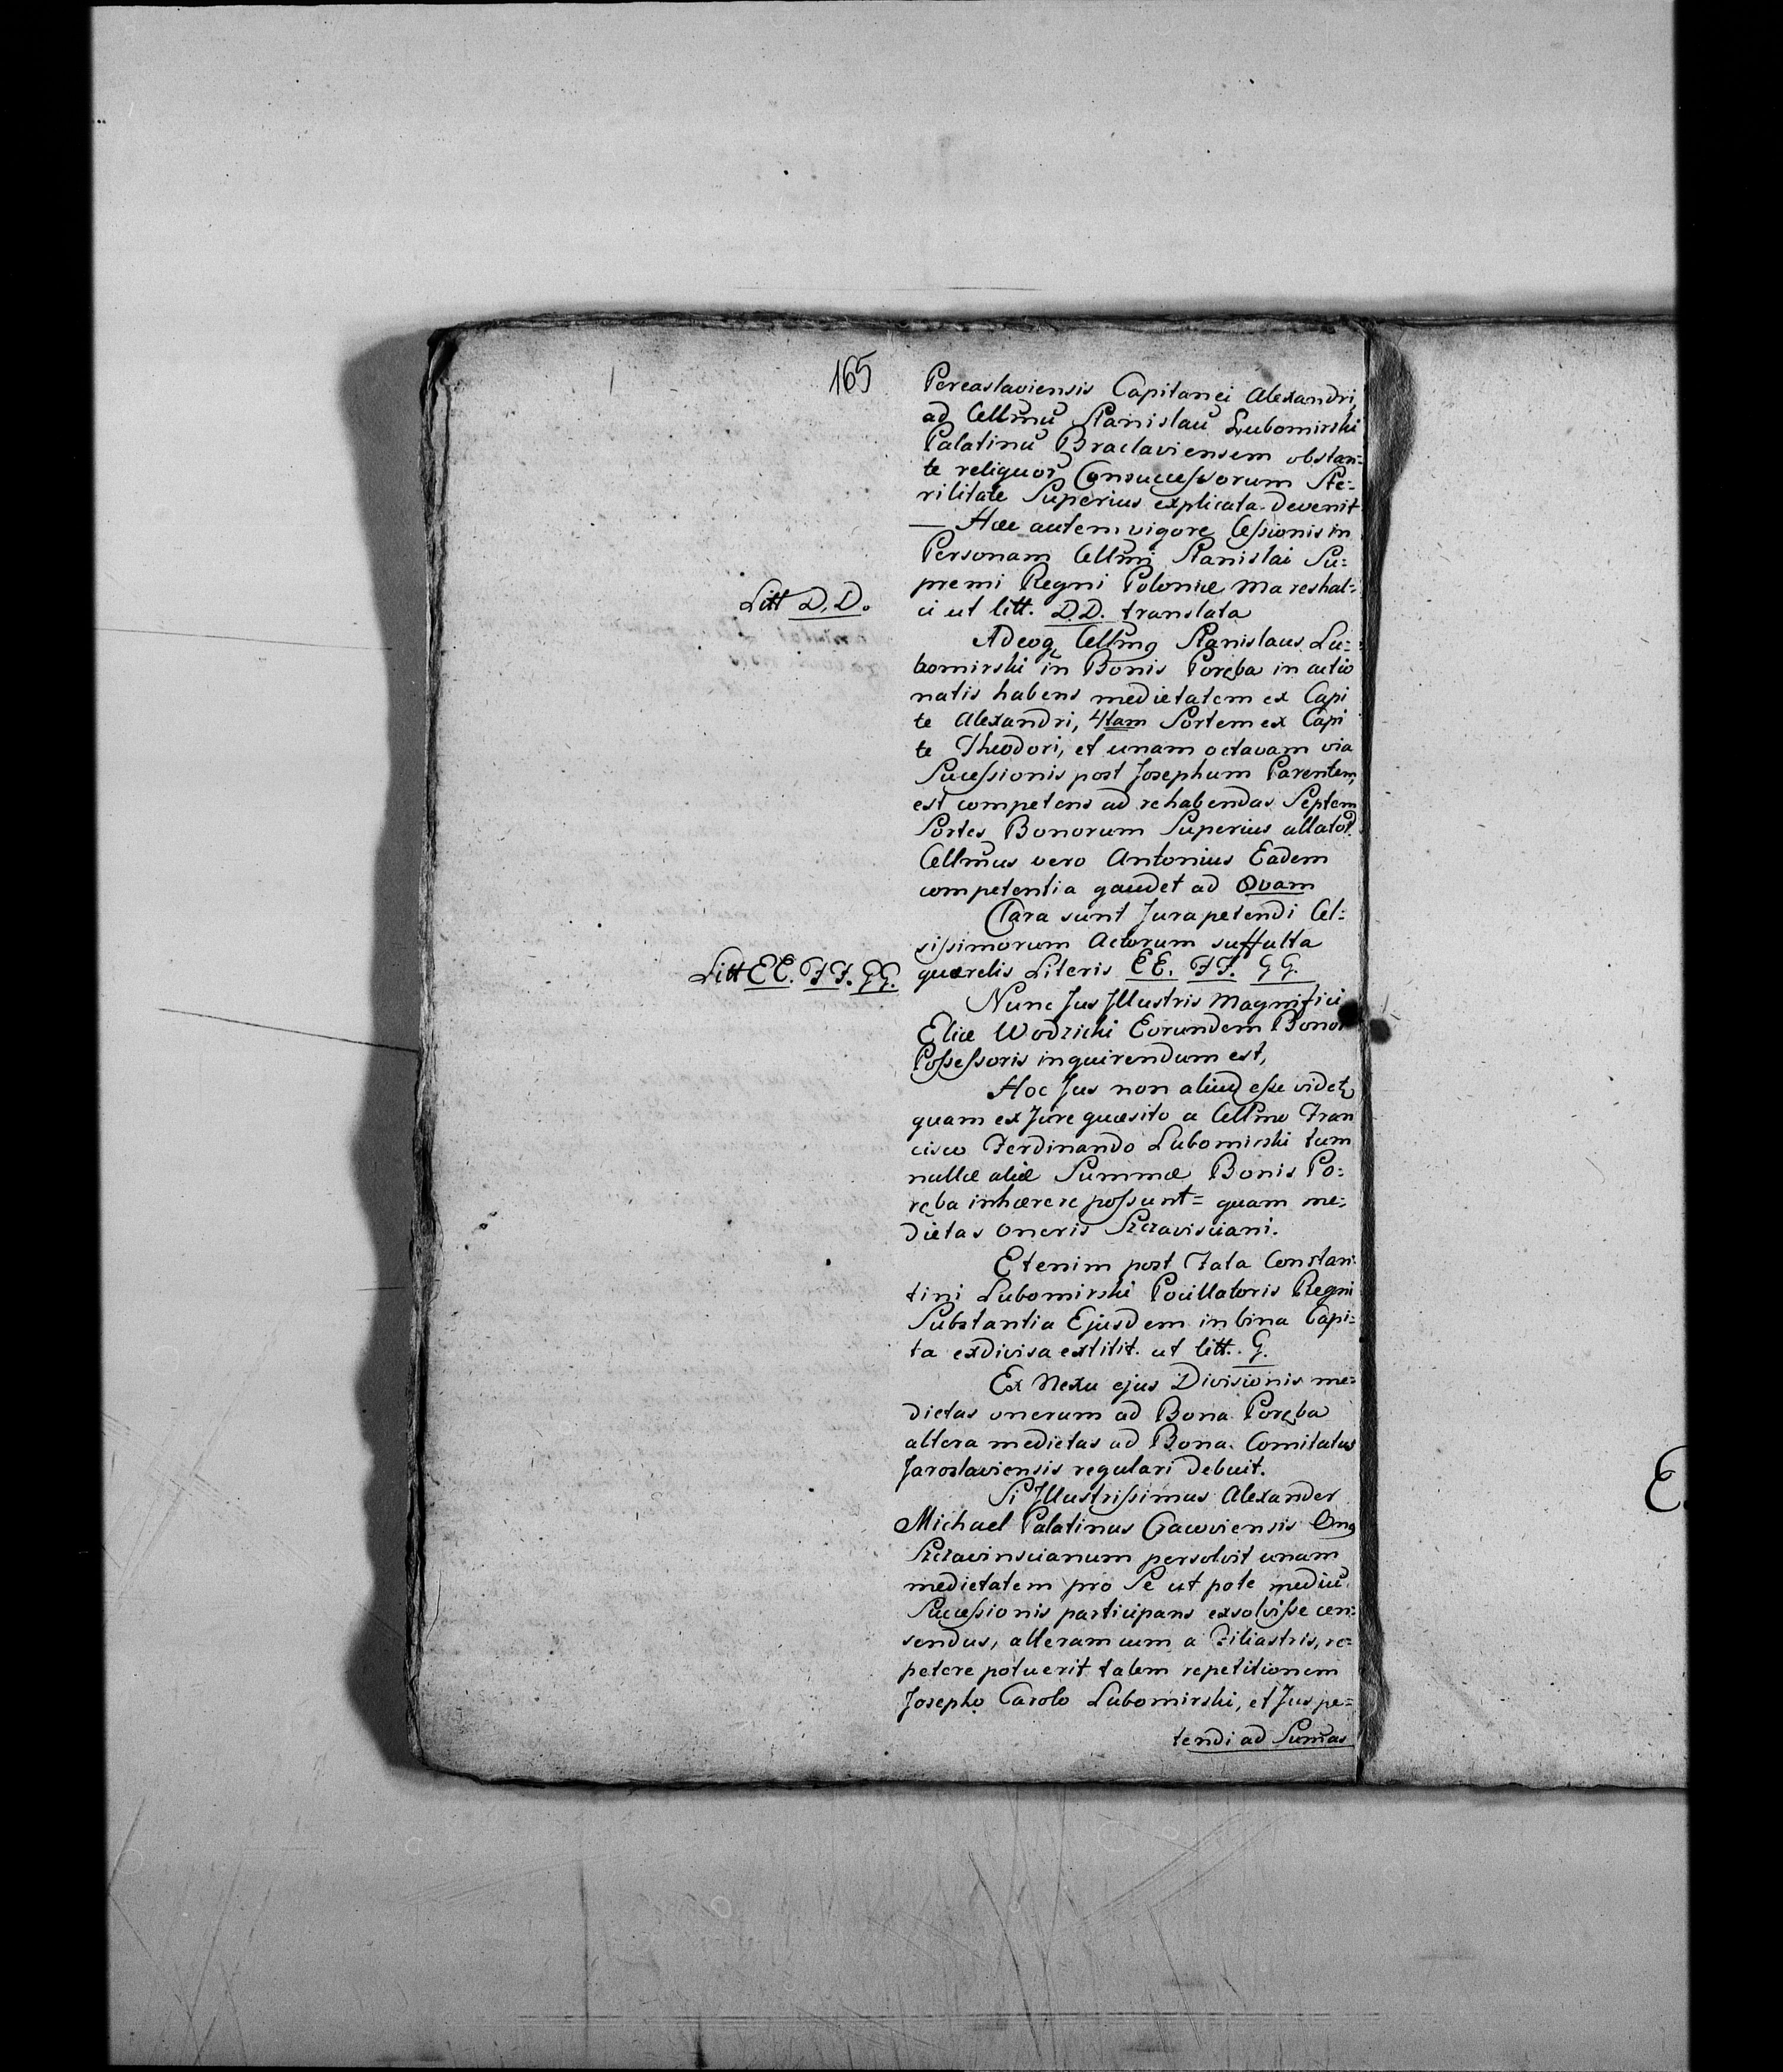 165
Pereaslaviensis Capitanei Alexandri,
ad Cellm̃ũ Stanislaũ Lubomirski
Palatinũ Braclaviensem obstan=
te reliquor̃ Consuccessorum Ste=
rilitate Superius explicata devenit
— Hæc autem vigore Cessionis in
Personam Cellm̃i Stanislai Su=
premi Regni Poloniæ Mareshal=
Litt D. D.
ci ut litt. D.D. translata
Adeoq Cellm̃9 Stanislaus Lu=
bomirski in Bonis Poręba in actio
natis habens medietatem ex Capi
te Alexandri, 4tam Sortem ex Capi
te Theodori, et unam octavam via
Sucessionis post Josephum Parentem,
est competens ad rehabendas Septem
Sortes Bonorum Superius allator̃.
Cellm̃us vero Antonius Eadem
competentia gaudet ad 8vam
Clara sunt Jura petendi Cel=
sissimorum Actorum suffulta
Litt EE. FF. GG.
quærelis Literis EE. FF. GG.
Nunc Jus Illustris Magnifici
Eliæ Wodzicki Eorundem Bonor
Possessoris inquirendum est,
Hoc Jus non aliud esse videt
quam ex Jure quæsito a Cellm̃o Fran
cisco Ferdinando Lubomirski tum
nullæ aliæ Summæ Bonis Po=
ręba inhærere possunt= quam me=
dietas oneris Szczavisciani.
Etenim post Fata Constan=
tini Lubomirski Pocillatoris Regni
Substantia Ejusdem in bina Capi=
ta exdivisa extitit. ut litt. G.
Ex Nexu ejus Divisionis me=
dietas onerum ad Bona Poręba
altera medietas ad Bona Comitatus
Jaroslaviensis regulari debuit.
Si Illustrissimus Alexander
Michael Palatinus Cracoviensis On9
Szczavinscianum persolvit unam
medietatem pro Se ut pote mediũ
Successionis participans exsolvisse cen=
sendus, alteram cum a Filiastris, re=
petere potuerit talem repetitionem
Josepho Carolo Lubomirski, et Jus pe=
tendi ad Sum̃as
E.